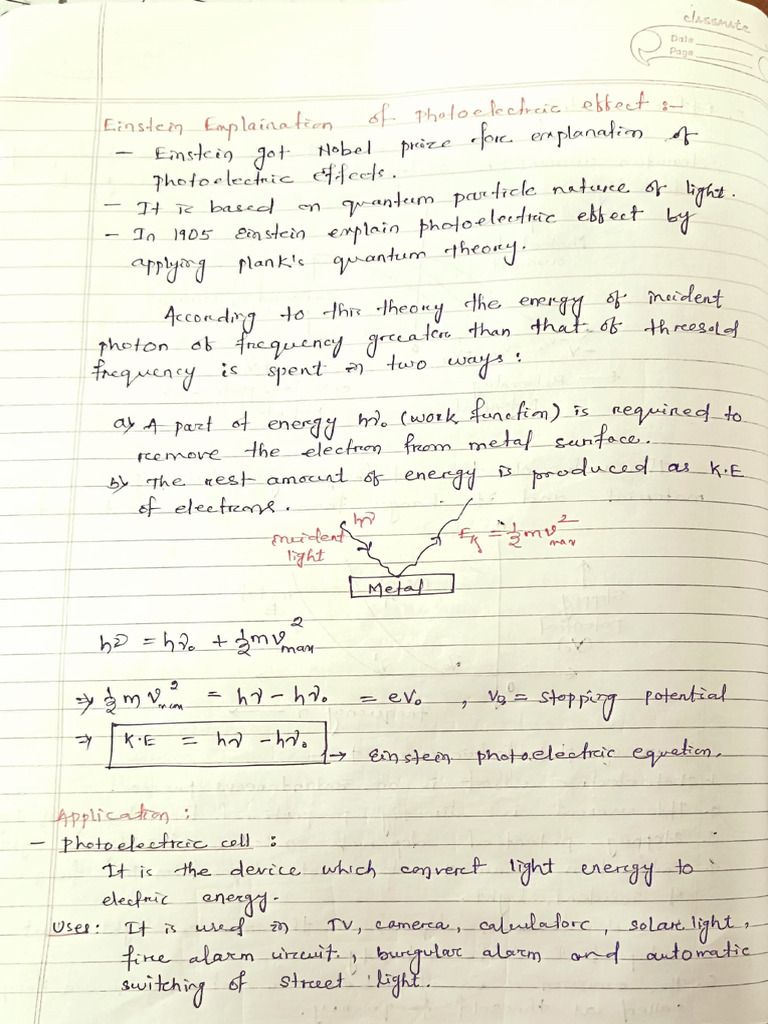 classmate
Date
Page
Einstein Explaination of Photoelectreic effect :-
- Einstein got Nobel prize fore explanation of
Photoelectric effects.
- It is based on quantum particle nature of light.
- In 1905 Einstein explain photoelectric effect by
applying plank's quantum theory.
According to this theory the energy of incident
photon of frequency greeatere than that of threesold
frequency is spent in two ways :
a) A part of energy hν₀ (work function) is required to
remove the electron from metal surface.
b) The rest amount of energy is produced as K.E
of electrons.
hν
incident
light
E_K = ½mv²max
Metal
hν = hν₀ + ½mv²max
⇒ ½mv²max = hν - hν₀ = eV₀ , V₀ = stopping potential
⇒ K.E = hν - hν₀ → Einstein photoelectric equation.
Application :
- Photoelectreic cell :
It is the device which converet light energy to
electric energy.
Uses: It is used in TV, camerea, calculatore, solare light,
fire alarm circuit, burgular alarm and automatic
switching of street light.